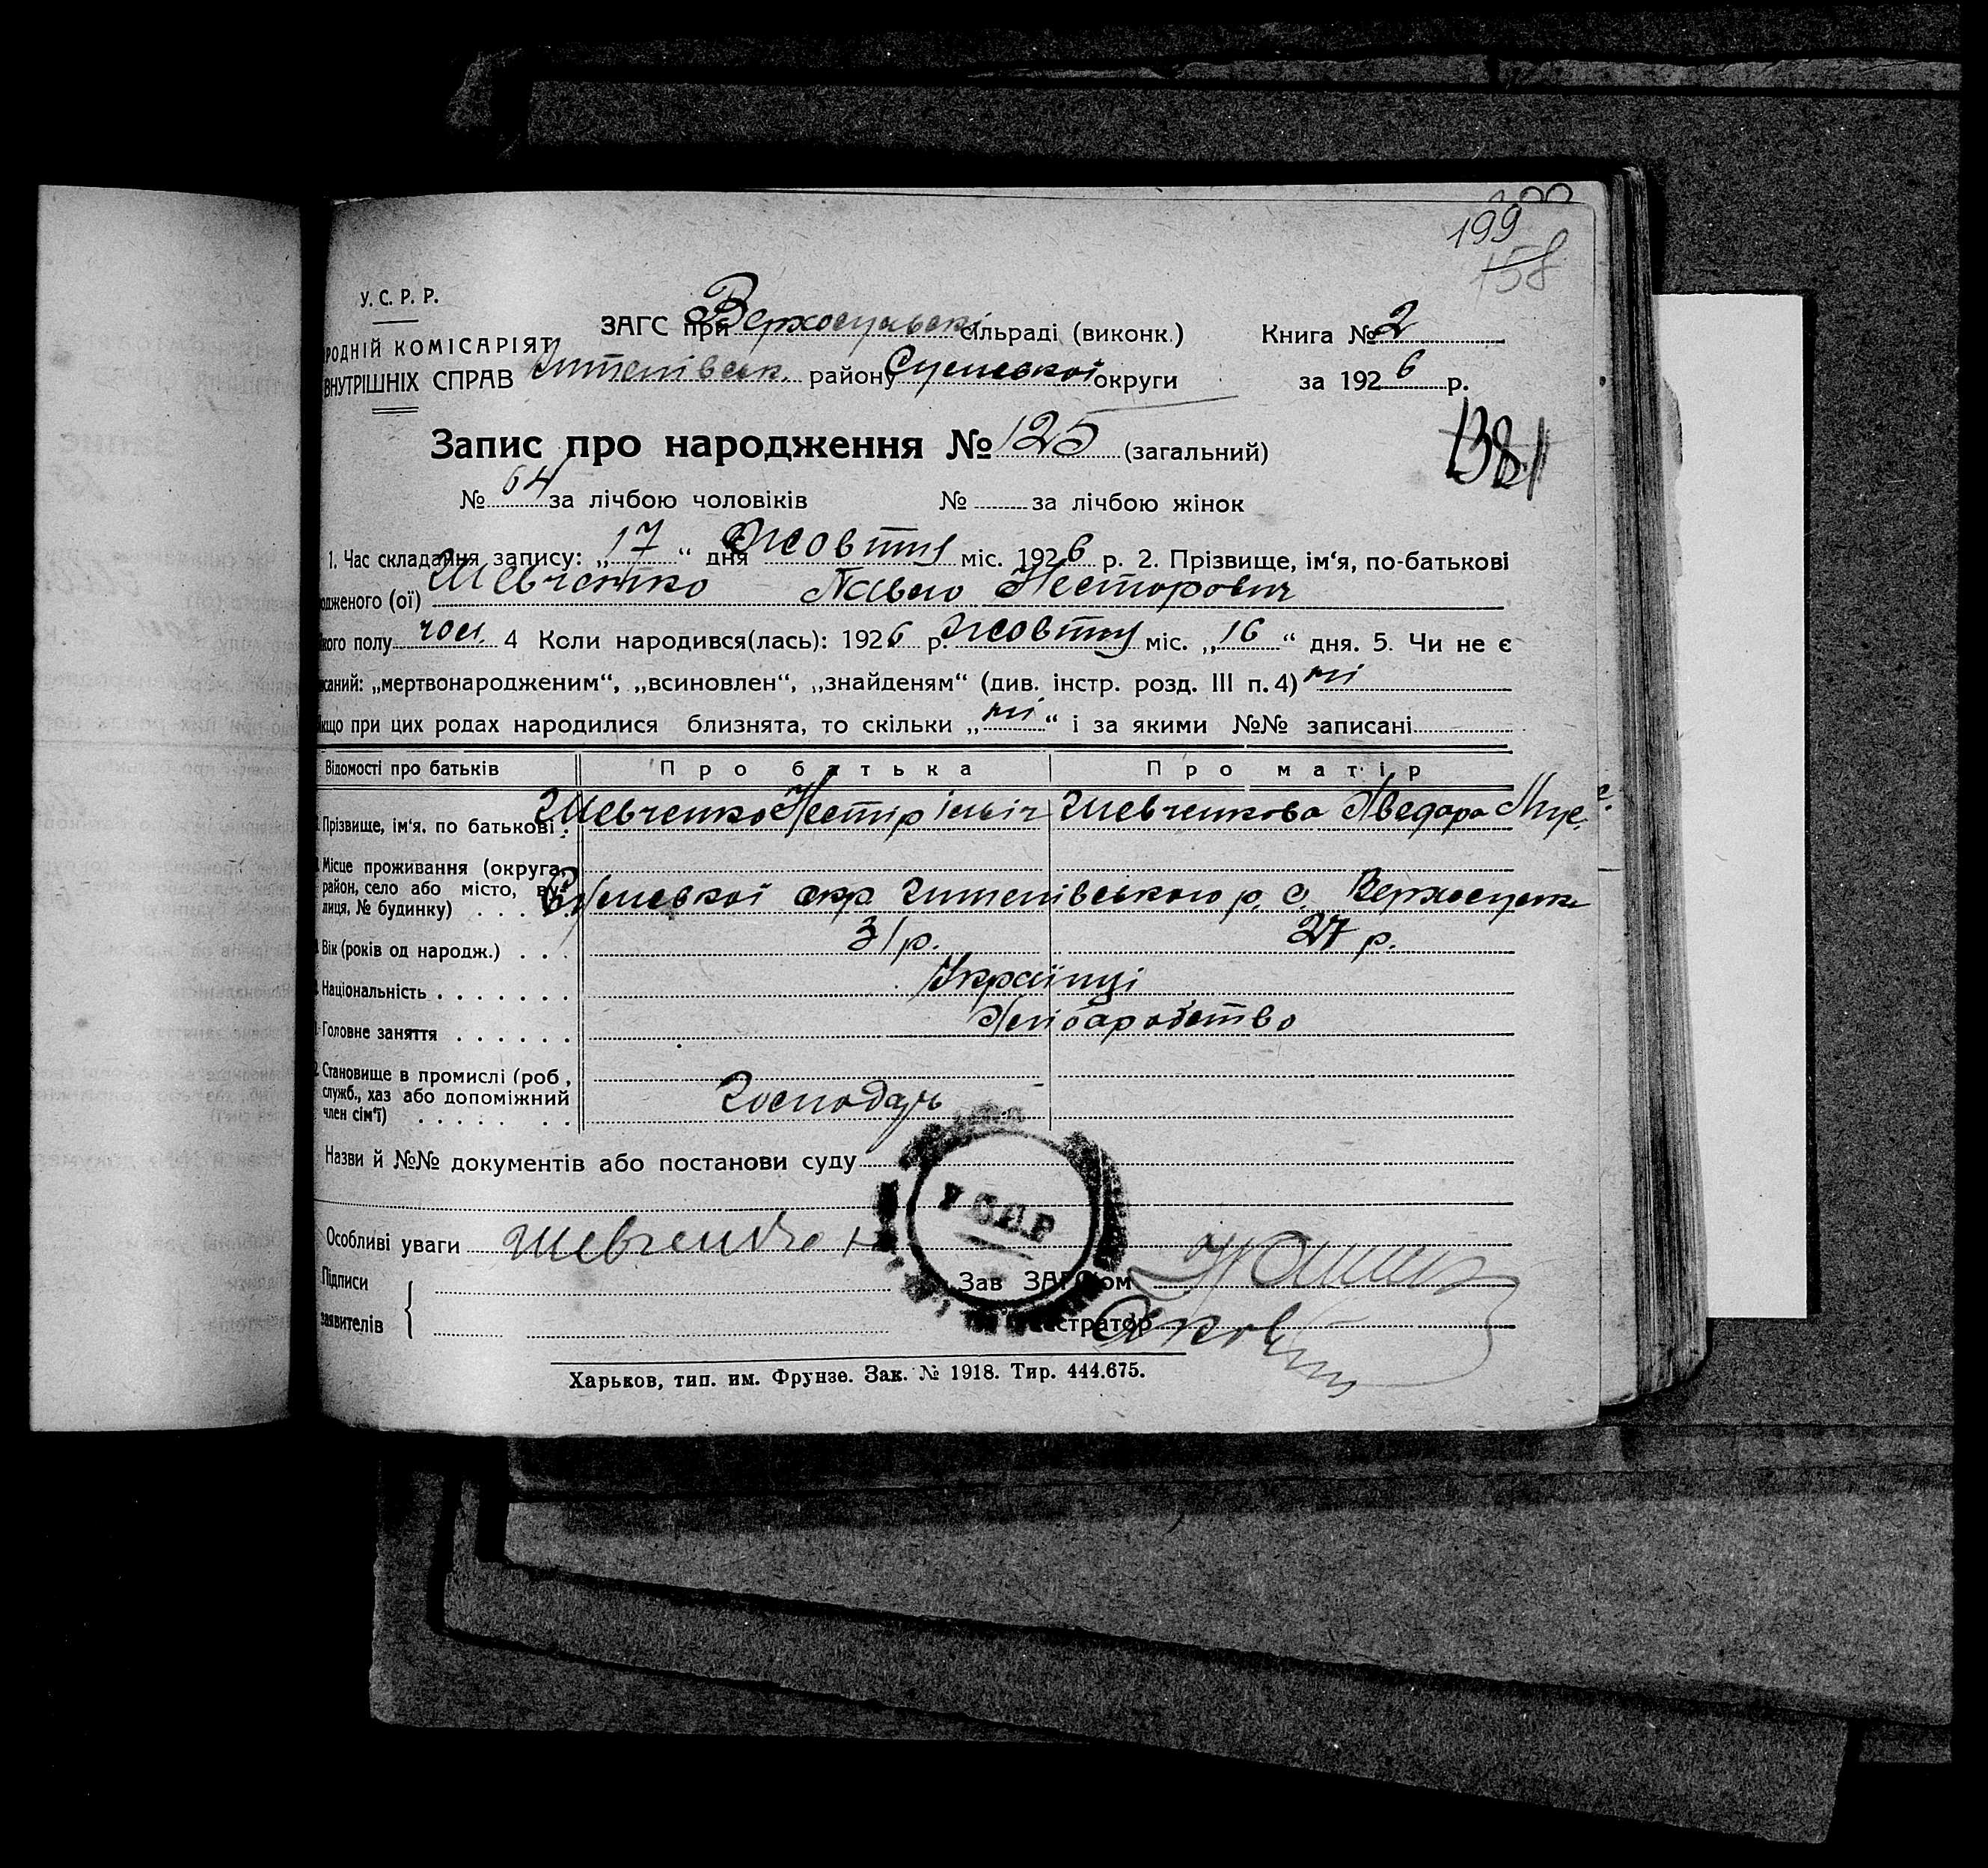 199
158
У. С. Р. Р.
РОДНІЙ КОМІСАРІЯТ
ВНУТРІШНІХ СПРАВ
ЗАГС при Верхосульській сільраді (виконк.) Книга № 2
району Сумської округи за 1926 р.
Запис про народження № 125 (загальний)
1381
№ 64 за лічбою чоловіків № за лічбою жінок
1. Час складання запису: „17“ дня Жовтня міс. 1926 р. 2. Прізвище, ім‘я, по-батькові
одженого (ої) Шевченко Павло Несторович
кого полу чол. 4 Коли народився(лась): 1926 р. Жовтня міс. „16“ дня. 5. Чи не є
исаний: „мертвонародженим“, „всиновлен“, „знайденям“ (див. інстр. розд. III п. 4) ні
кщо при цих родах народилися близнята, то скільки „ні“ і за якими №№ записані
Відомості про батьків Про батька Про матір
Прізвище, ім‘я. по батькові Шевченко Нестір Ілліч Шевченкова Аведора Мус.
Місце проживання (округа, район, село або місто, вулиця, № будинку) Сумської окр р. с. Верхосулка
Вік (років од народж.) 31 р. 27 р.
Національність Українці
Головне заняття Хліборобство
Становище в промислі (роб, служб., хаз або допоміжний член сім‘ї) Господарь
Назви й №№ документів або постанови суду
УСРР
Особливі уваги Шевченко Н
Підписи заявителів
Зав ЗАГСом
Реєстратор
Харьков, тип. им. Фрунзе. Зак. № 1918. Тир. 444.675.